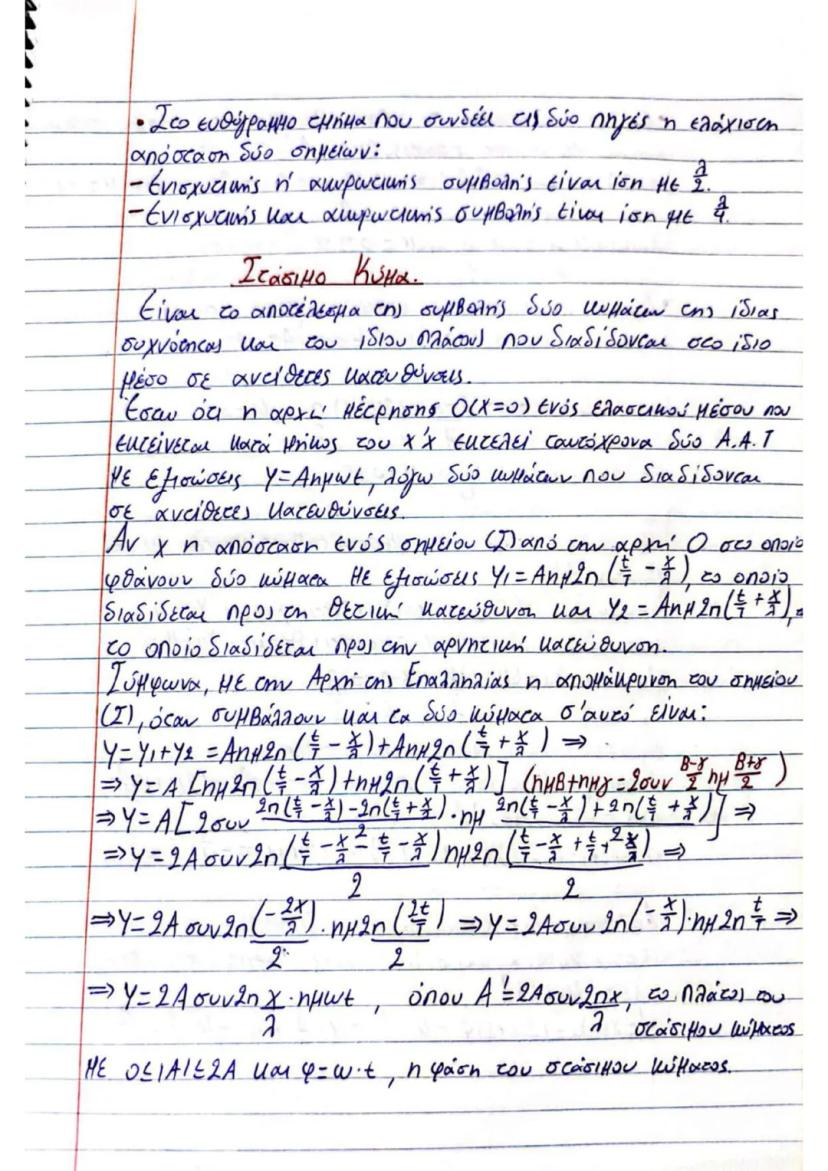 • Στο ευθύγραμμο τμήμα που συνδέει τις δύο πηγές η ελάχιστη
απόσταση δύο σημείων:
- Ενισχυτικής ή ακυρωτικής συμβολής είναι ίση με λ/2.
- Ενισχυτικής και ακυρωτικής συμβολής είναι ίση με λ/4.
Στάσιμο Κύμα.
Είναι το αποτέλεσμα της συμβολής δύο κυμάτων της ίδιας
συχνότητας και του ίδιου πλάτους που διαδίδονται στο ίδιο
μέσο σε αντίθετες κατευθύνσεις.
Έστω ότι η αρχή μέτρησης Ο(x=0) ενός ελαστικού μέσου που
εκτείνεται κατά μήκος του x'x εκτελεί ταυτόχρονα δύο Α.Α.Τ
με εξισώσεις y=Aημωt, λόγω δύο κυμάτων που διαδίδονται
σε αντίθετες κατευθύνσεις.
Αν x η απόσταση ενός σημείου (Σ) από την αρχή Ο στο οποίο
φθάνουν δύο κύματα με εξισώσεις y1=Aημ2π(t/T - x/λ), το οποίο
διαδίδεται προς τη θετική κατεύθυνση και y2=Aημ2π(t/T + x/λ),
το οποίο διαδίδεται προς την αρνητική κατεύθυνση.
Σύμφωνα, με την Αρχή της Επαλληλίας η απομάκρυνση του σημείου
(Σ), όταν συμβάλλουν και τα δύο κύματα σ'αυτό είναι:
y=y1+y2 =Aημ2π(t/T - x/λ)+Aημ2π(t/T + x/λ) ⇒
⇒ y=A [ημ2π(t/T - x/λ)+ημ2π(t/T + x/λ)] (ημβ+ημγ=2συν β-γ/2 ημ β+γ/2)
⇒ y=A[2συν 2π(t/T - x/λ)-2π(t/T + x/λ)/2 · ημ 2π(t/T - x/λ)+2π(t/T + x/λ)/2] ⇒
⇒ y=2Aσυν2π(t/T - x/λ - t/T - x/λ)/2 ημ2π(t/T - x/λ + t/T + x/λ)/2 ⇒
⇒ y=2Aσυν2π(-2x/λ)/2 · ημ2π(2t/T)/2 ⇒ y=2Aσυν2π(-x/λ)·ημ2π t/T ⇒
⇒ y=2Aσυν2π x/λ · ημωt , όπου A'=2Aσυν2πx/λ, το πλάτος του
στάσιμου κύματος
με 0≤|A'|≤2A και φ=ω·t , η φάση του στάσιμου κύματος.